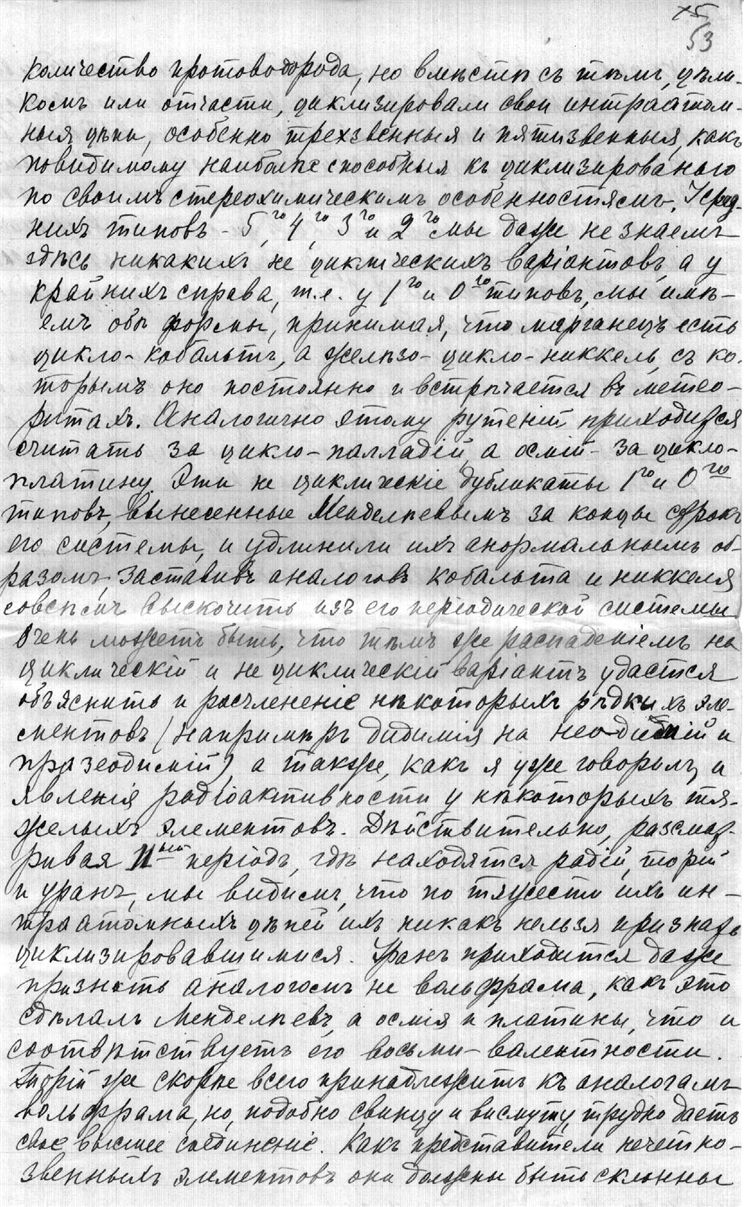 53
количество протоводорода, но вмѣстѣ съ тѣмъ, цѣли-
комъ или отчасти, циклизировали свои интраатом-
ныя цѣпи, особенно трехзвенныя и пятизвенныя, какъ
повидимому наиболѣе способныя къ циклизированого
по своимъ стереохимическимъ особенностямъ. У сред-
нихъ типовъ - 5го, 4го, 3го и 2го мы даже не знаемъ
здѣсь никакихъ не циклическихъ варіантовъ, а у
крайнихъ справа, т.е. у 1го и 0го типовъ, мы имѣ-
емъ обѣ формы, принимая, что марганецъ есть
цикло-кобальтъ, а желѣзо - цикло-никкель, съ ко-
торымъ оно постоянно и встрѣчается въ метео-
ритахъ. Аналогично этому рутеній приходится
считать за цикло-палладій, а осмій - за цикло-
платину. Эти не циклическіе дубликаты 1го и 0го
типовъ, вынесенные Менделѣевымъ за концы строкъ
его системы, и удлинили ихъ анормальнымъ об-
разомъ, заставивъ аналоговъ кобальта и никкеля
совсѣмъ выскочить изъ его періодической системы.
Очень можетъ быть, что тѣмъ же распаденіемъ на
циклическій и не циклическій варіантъ удастся
объяснить и расчлененіе нѣкоторыхъ рѣдкихъ эле-
ментовъ (напримѣръ дидимія на неодимій и
празеодимій), а также, какъ я уже говорилъ, и
явленія радіоактивности у нѣкоторыхъ тя-
желыхъ элементовъ. Дѣйствительно, разсмат-
ривая періодъ, гдѣ находятся радій, торій
и уранъ, мы видимъ, что по тяжести ихъ ин-
траатомныхъ цѣпей ихъ никакъ нельзя признать
циклизировавшимися. Уранъ приходится даже
признать аналогомъ не вольфрама, какъ это
сдѣлалъ Менделѣевъ, а осмія и платины, что и
соотвѣтствуетъ его восьми-валентности.
Торій же скорѣе всего принадлежитъ къ аналогамъ
вольфрама, но, подобно свинцу и висмуту, трудно даетъ
свое высшее соединеніе. Какъ представители нечетно-
звенныхъ элементовъ они должны быть склонны